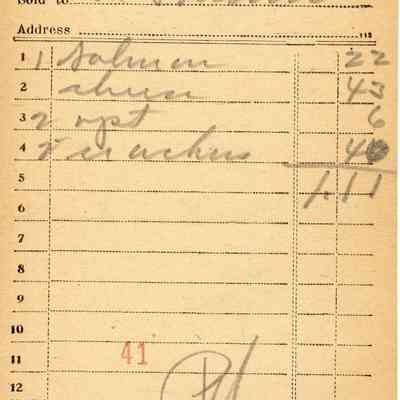 Sold to
Address 113
1 1 Salmon 22
2 cheese 43
3 2 yst 6
4 2 crackers 40
5 1.11
6
7
8
9
10
11 41
12 Pd